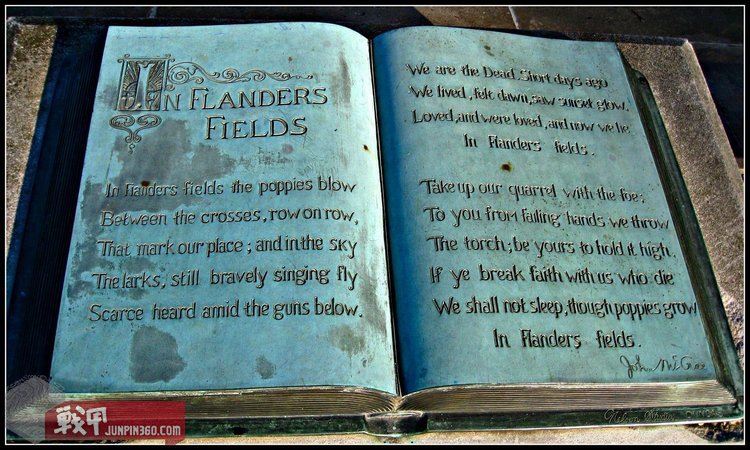 In Flanders
Fields
In Flanders fields the poppies blow
Between the crosses, row on row,
That mark our place; and in the sky
The larks, still bravely singing fly
Scarce heard amid the guns below.
We are the Dead. Short days ago
We lived, felt dawn, saw sunset glow,
Loved, and were loved, and now we lie
In Flanders fields.
Take up our quarrel with the foe;
To you from failing hands we throw
The torch; be yours to hold it high.
If ye break faith with us who die
We shall not sleep, though poppies grow
In Flanders fields.
John McCrae
战甲 JUNPIN360.COM